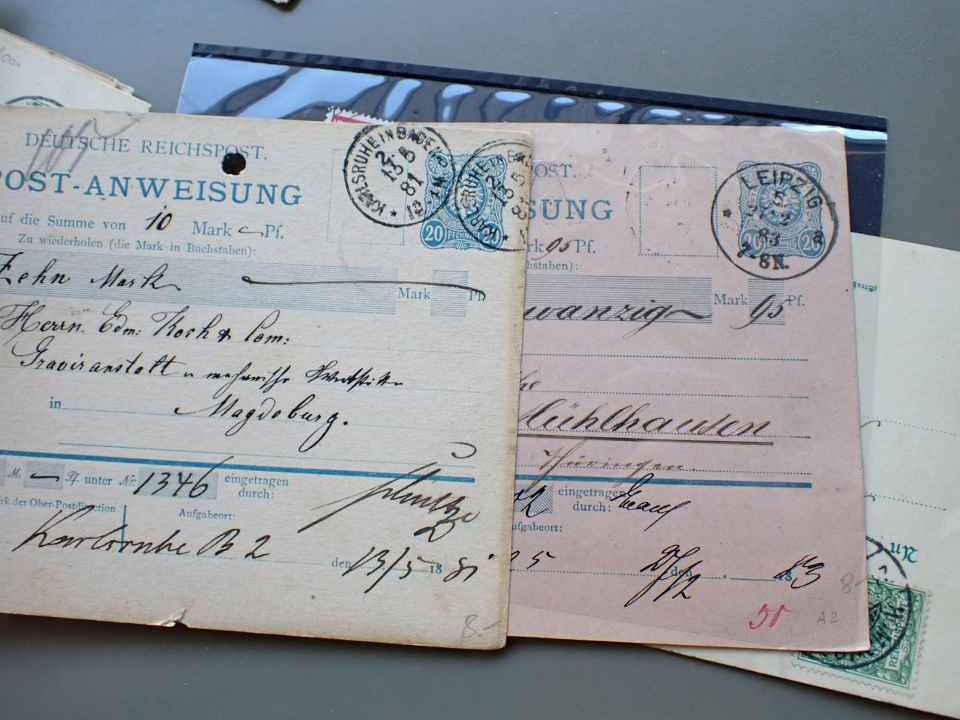 DEUTSCHE REICHSPOST.
POST-ANWEISUNG
auf die Summe von 10 Mark Pf.
Zu wiederholen (die Mark in Buchstaben):
Zehn Mark
Mark Pf.
Herrn Edm: Koch & Com:
Graviranstalt u mechanische Werkstätte
in Magdeburg.
M. — Pf. unter Nr. 1346 eingetragen durch:
der Ober-Postdirection
Aufgabeort:
Karlsruhe B 2
den 13/5 1881
8.–
KARLSRUHE IN BADEN
13 5
81
20 PFENNIG 20
KARLSRUHE IN BADEN
POST.
SUNG
Mark 95 Pf.
staben):
wanzig Mark 95 Pf.
Mühlhausen
Thüringen.
eingetragen
durch:
Aufgabeort:
den 1883
50
A2
8.–
LEIPZIG
83
8N.
20